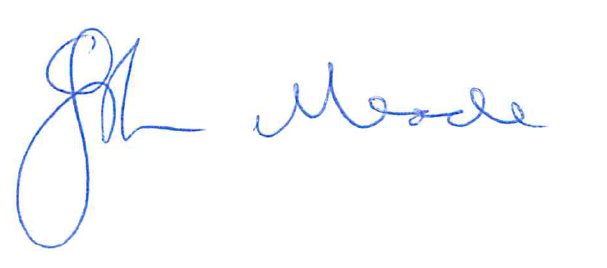 John Meade